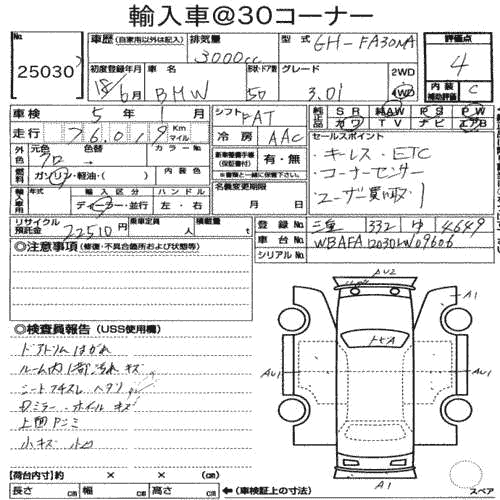 輸入車@30コーナー
No. 25030
車歴 (自家用以外は記入)
排気量 3000cc
型式 GH-FA30NA
評価点 4
初度登録年月 18年6月
車名 BMW
形状・ドア数 5D
グレード 3.0i
2WD 4WD
内装補助評価 C
車検 5年 1月
シフト FAT
純正品 SR 純AW PS PW
カワ TV ナビ エアB
走行 76,019 Km マイル
冷房 AAC
セールスポイント
外色 元色 クロ 色替 カラーNo.
・キーレス・ETC
燃料 ガソリン・軽油・( ) 内装色
新車整備手帳(保証書付) 有・無
※書類と一緒に保管下さい。
・コーナーセンサー
輸入車用 年式 輸入区分 ハンドル
ディーラー・並行 左・右
名義変更期限 月 日
・ユーザー買取
リサイクル預託金 22510円
乗車定員 人 積載量 t
登録No. 三重 332 ゆ 4649
車台No. WBAFA12030LW09606
シリアルNo.
◎注意事項 (修復・不具合箇所および状態等)
◎検査員報告 (USS使用欄)
ドアトリム はがれ
ルーム内1部汚れ キズ
シートフチスレ ヘタリ
Dミラー・ホイール キズ
小キズ
【荷台内寸】約 × × (cm)
長さ cm 幅 cm 高さ cm ←(車検証上の寸法)
AU2
A1
AU1
AU1
A1
スペア